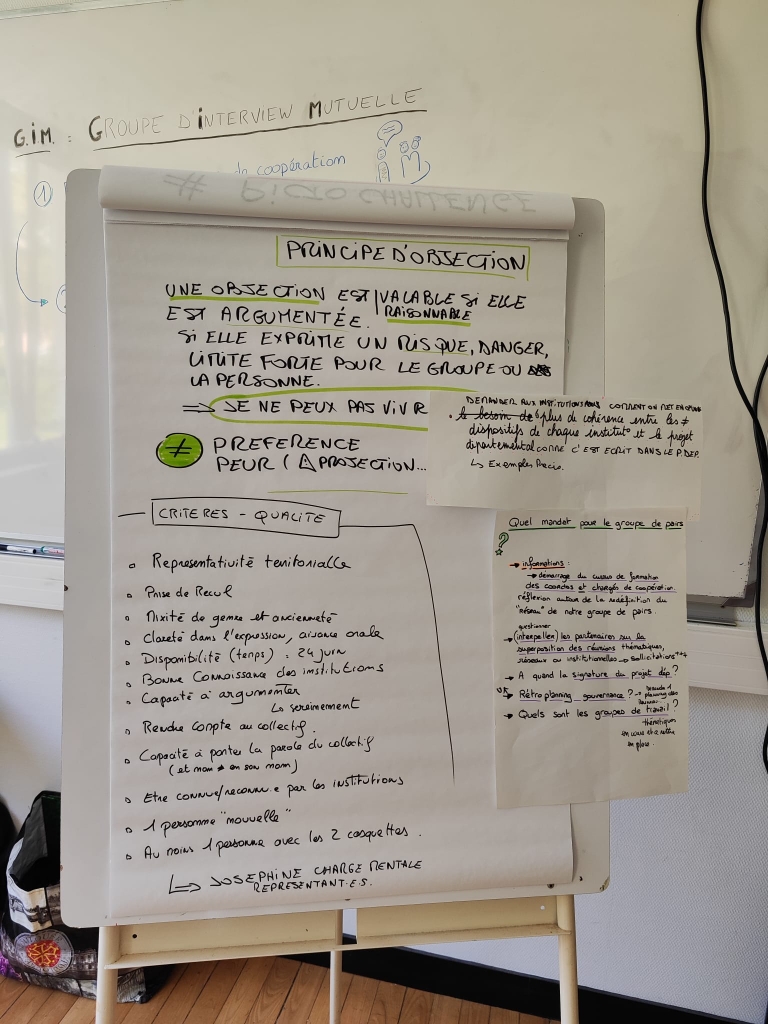 G.I.M. : GROUPE D'INTERVIEW MUTUELLE
① de coopération
# PICTO CHALLENGE
PRINCIPE D'OBJECTION
UNE OBJECTION EST VALABLE SI ELLE
EST ARGUMENTÉE. RAISONNABLE
SI ELLE EXPRIME UN RISQUE, DANGER,
LIMITE FORTE POUR LE GROUPE OU
LA PERSONNE.
=> JE NE PEUX PAS VIVR
≠ PREFERENCE
PEUR (⚠ PROJECTION...
DEMANDER AUX INSTITUTIONS COMMENT ON MET EN
• le besoin de plus de cohérence entre les ≠
dispositifs de chaque institut° et le projet
départemental COMME C'EST ECRIT DANS LE P.DEP.
↳ Exemples Précis.
CRITERES - QUALITE
Representativité territorialle
Prise de Recul
Mixité de genre et ancienneté
Clareté dans l'expression, aisance orale
Disponibilité (temps) : 24 juin
Bonne Connaissance des institutions
Capacité à argumenter
↳ sereinement
Rendre compte au collectif.
Capacité à porter la parole du collectif
(et non en son nom)
Etre connue/reconnu.e par les institutions
1 personne "nouvelle"
Au moins 1 personne avec les 2 casquettes.
↳ JOSEPHINE CHARGE MENTALE
REPRESENTANT.E.S.
Quel mandat pour le groupe de pairs
?
→ informations :
→ démarrage du cursus de formation
des coordos et chargés de coopération.
réflexion autour de la redéfinition du
"Réseau" de notre groupe de pairs.
questionner
→ (interpeller) les partenaires sur la
superposition des réunions thématiques,
réseaux ou institutionnelles → sollicitations +++
→ A quand la signature du projet dép ?
→ Rétro planning gouvernance ? →
→ Quels sont les groupes de travail ?
thématiques
en cours et à mettre
en place.